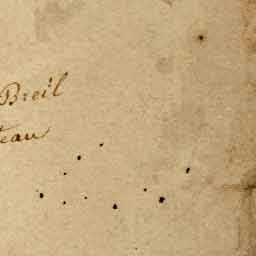 Breil
teau